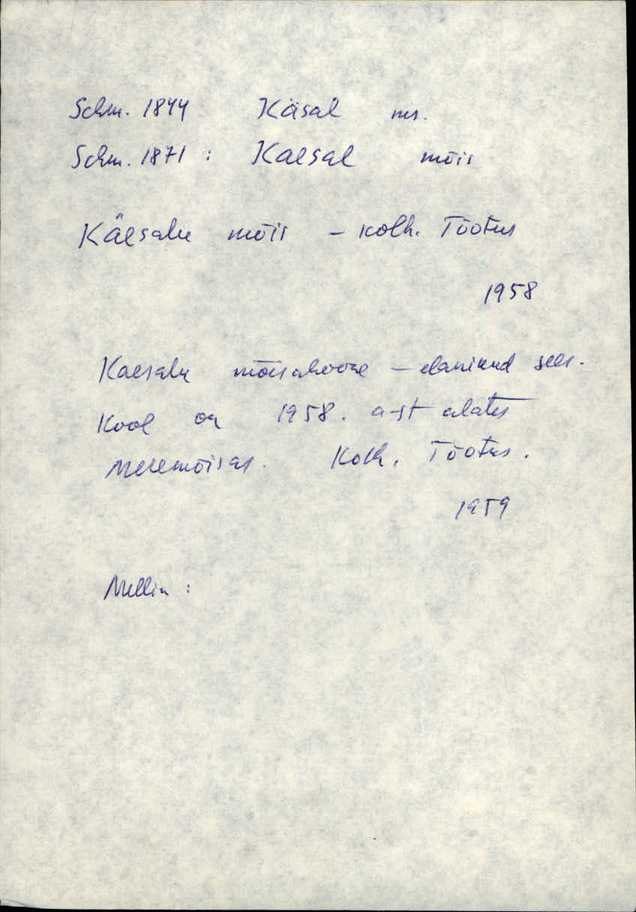 Schm. 1844 Käsal ms.
Schm. 1871 : Kaesal mõis
Käesalu mõis – kolh. Tõotus
1958
Kaesalu mõisahoone – elanikud sees.
Kool on 1958. a-st alates
Meremõisas. Kolh. Tõotus.
1959
Mellin :